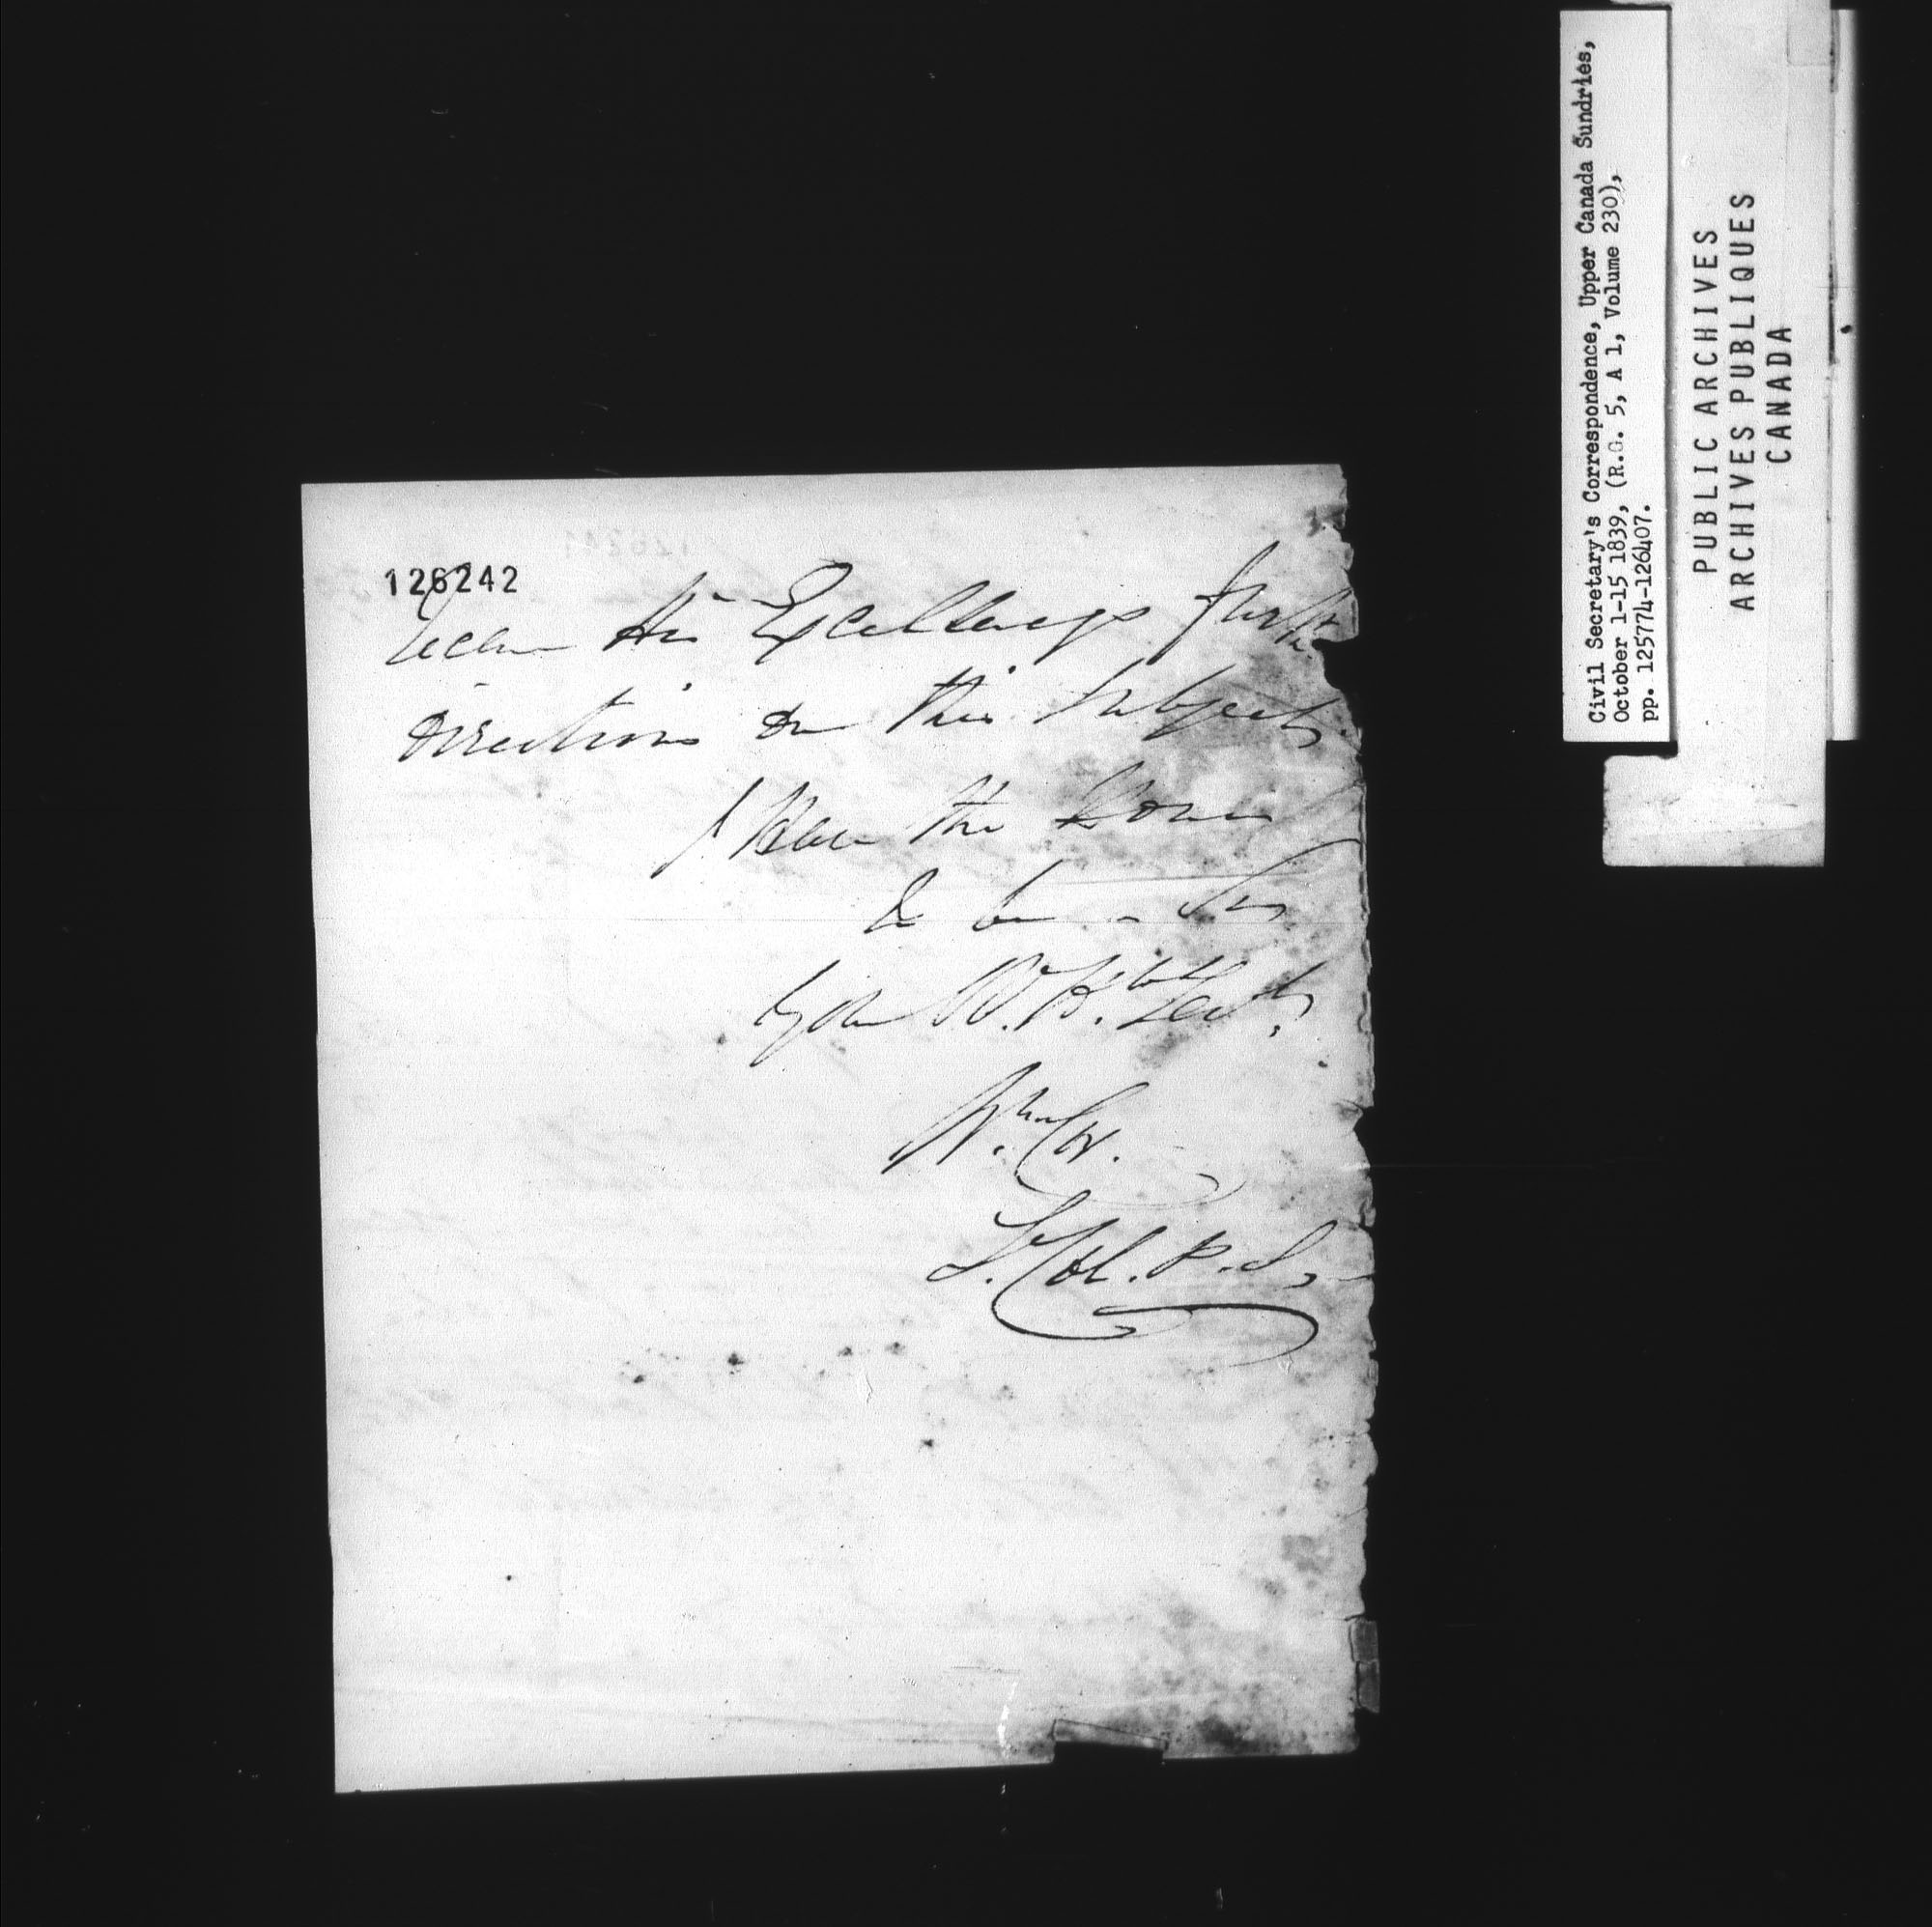 126242
receive His Excellencys further
directions on this subject.
I have the honor
to be - Sir
your M. H. Servt.
Wm Cox
Lt Col. P. S.
Civil Secretary's Correspondence, Upper Canada Sundries,
October 1-15 1839, (R.G. 5, A 1, Volume 230),
pp. 125774-126407.
PUBLIC ARCHIVES
ARCHIVES PUBLIQUES
CANADA